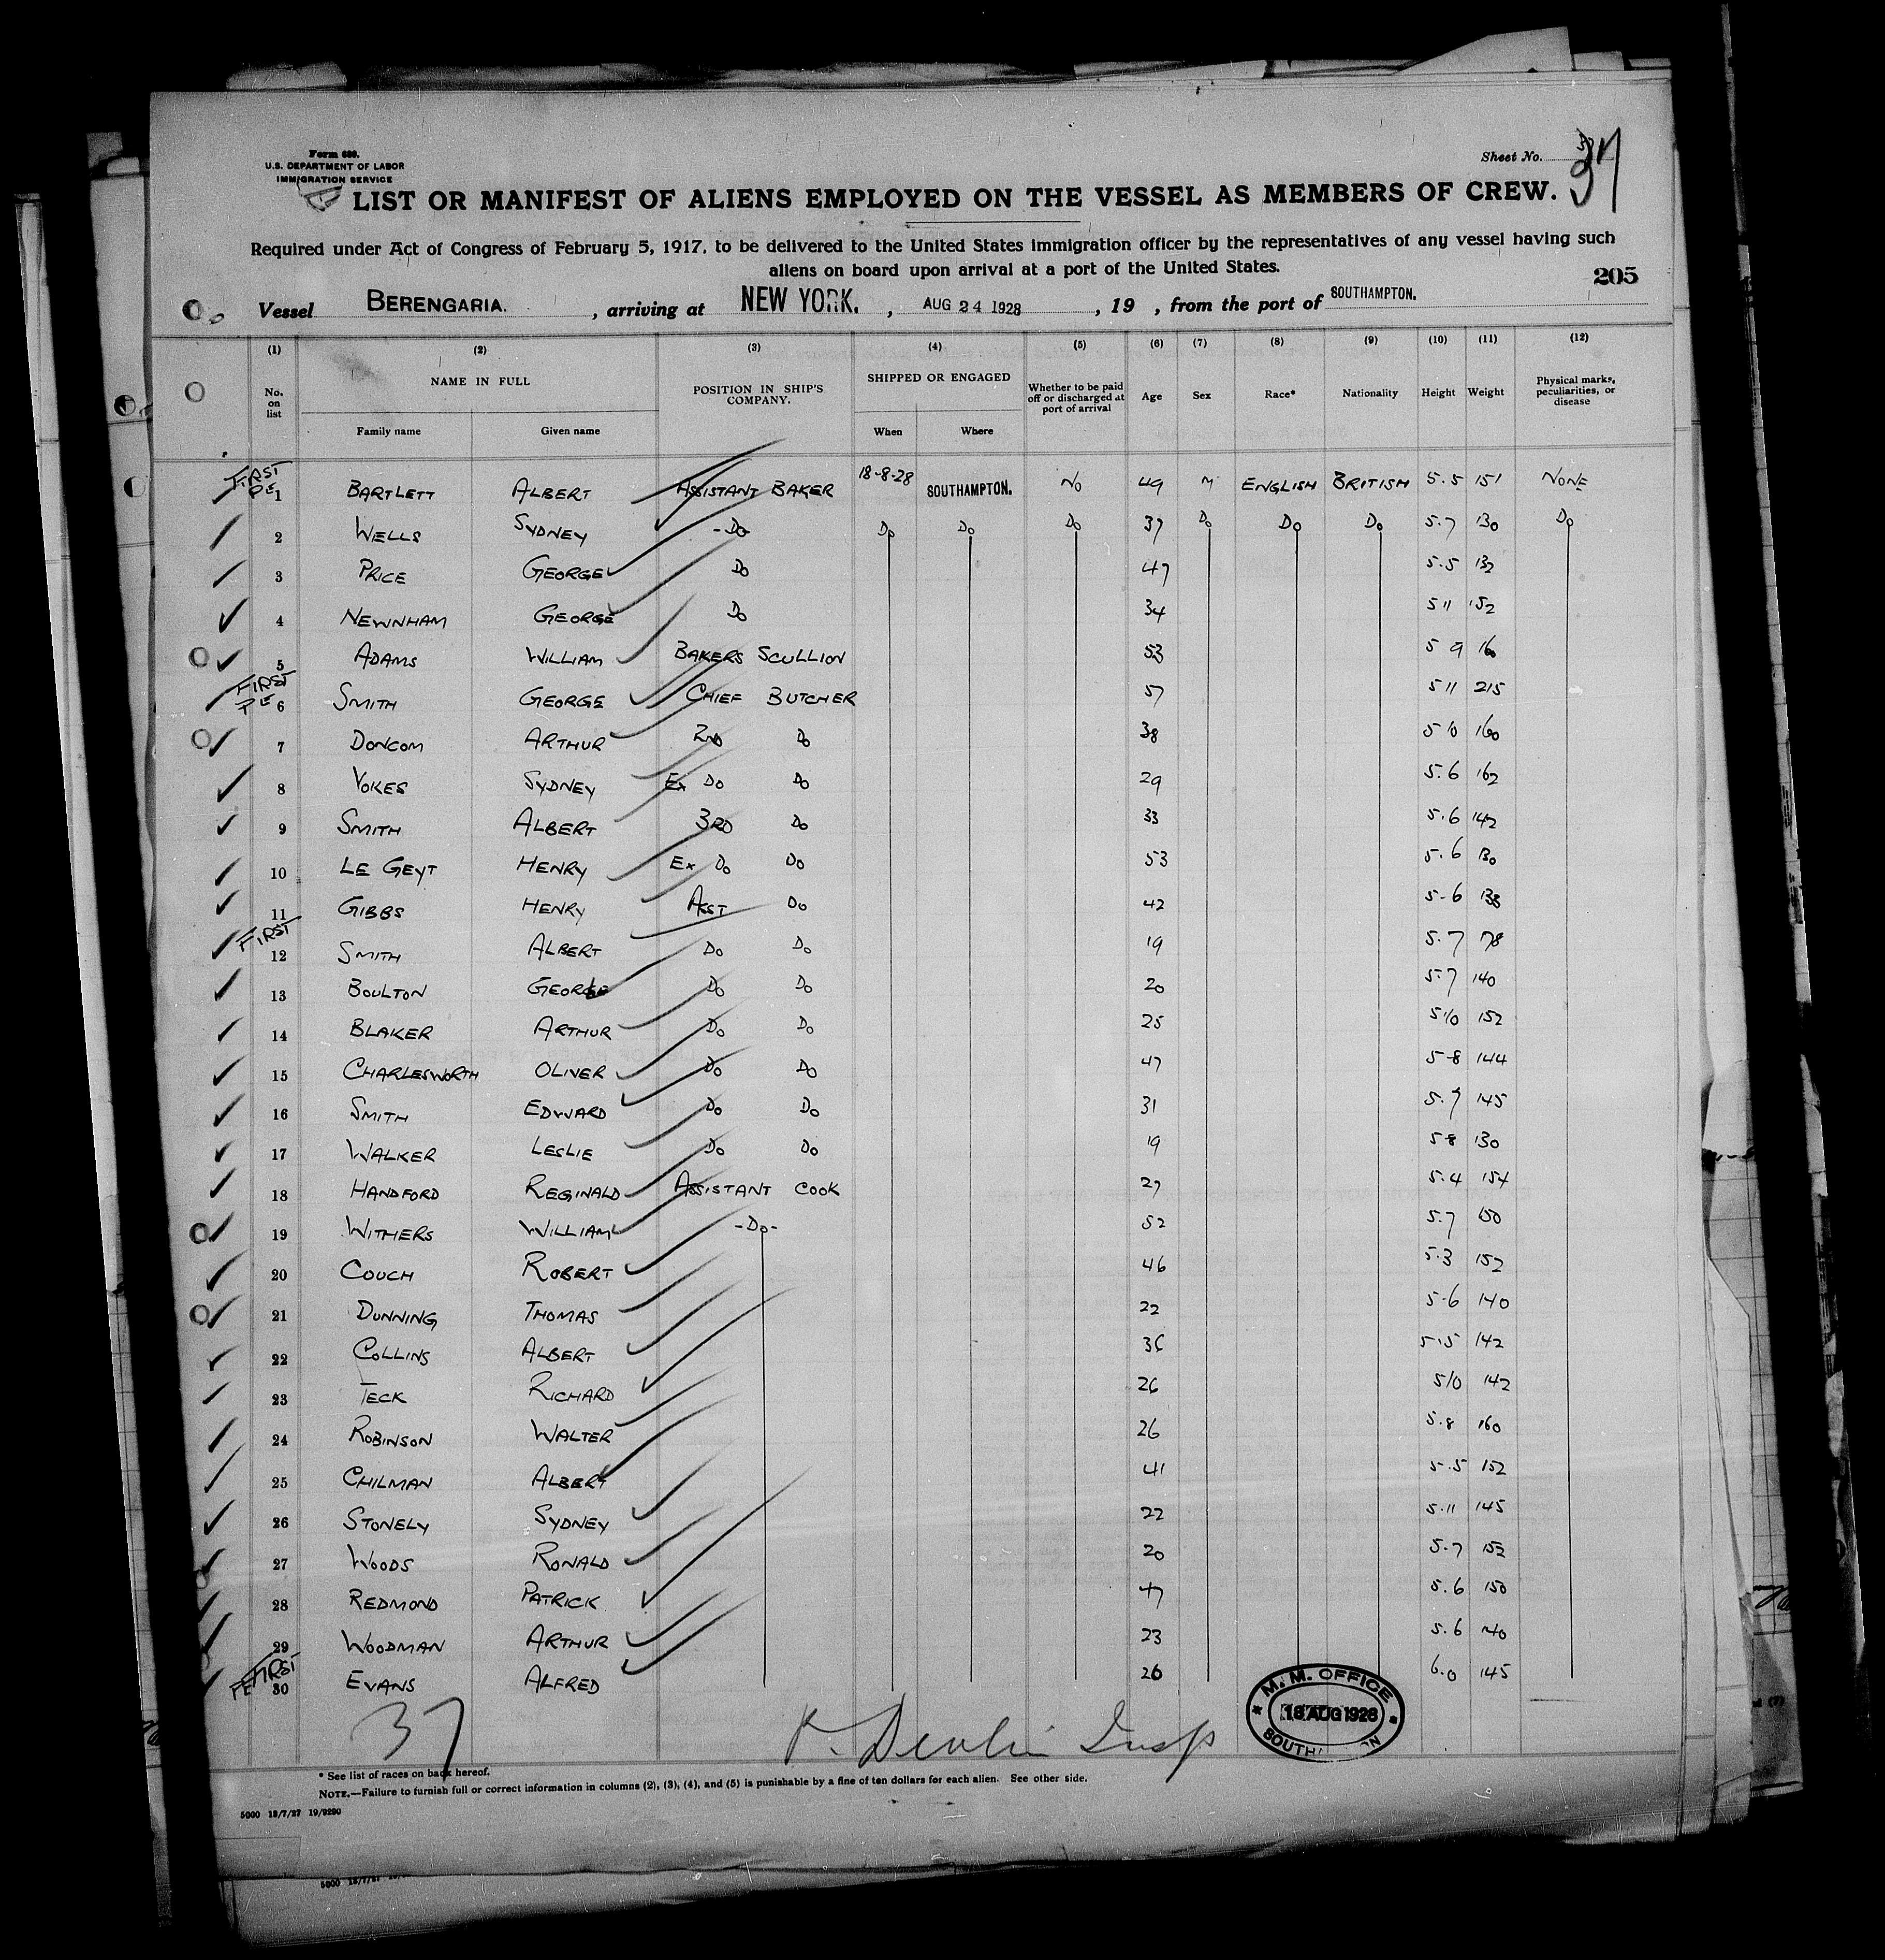 Form 689.
U.S. DEPARTMENT OF LABOR
IMMIGRATION SERVICE
Sheet No. 37
LIST OR MANIFEST OF ALIENS EMPLOYED ON THE VESSEL AS MEMBERS OF CREW.
Required under Act of Congress of February 5, 1917, to be delivered to the United States immigration officer by the representatives of any vessel having such
aliens on board upon arrival at a port of the United States.
205
Vessel BERENGARIA. , arriving at NEW YORK. , AUG 24 1928 , 19 , from the port of SOUTHAMPTON.
(1) (2) (3) (4) (5) (6) (7) (8) (9) (10) (11) (12)
No. on list NAME IN FULL Family name Given name POSITION IN SHIP'S COMPANY. SHIPPED OR ENGAGED When Where Whether to be paid off or discharged at port of arrival Age Sex Race* Nationality Height Weight Physical marks, peculiarities, or disease
FIRST PE 1 BARTLETT ALBERT ASSISTANT BAKER 18-8-28 SOUTHAMPTON. NO 49 M ENGLISH BRITISH 5.5 151 NONE
2 WELLS SYDNEY -DO- DO DO DO 37 DO DO DO 5.7 130 DO
3 PRICE GEORGE DO 47 5.5 132
4 NEWNHAM GEORGE DO 34 5 11 152
5 ADAMS WILLIAM BAKERS SCULLION 53 5 9 160
FIRST PE 6 SMITH GEORGE CHIEF BUTCHER 57 5 11 215
7 DONCOM ARTHUR 2ND DO 38 5 10 160
8 VOKES SYDNEY EX DO DO 29 5.6 162
9 SMITH ALBERT 3RD DO 33 5.6 142
10 LE GEYT HENRY EX DO DO 53 5.6 130
11 GIBBS HENRY ASST DO 42 5-6 138
FIRST 12 SMITH ALBERT DO DO 19 5.7 178
13 BOULTON GEORGE DO DO 20 5-7 140
14 BLAKER ARTHUR DO DO 25 5 10 152
15 CHARLESWORTH OLIVER DO DO 47 5-8 144
16 SMITH EDWARD DO DO 31 5.7 145
17 WALKER LESLIE DO DO 19 5-8 130
18 HANDFORD REGINALD ASSISTANT COOK 27 5.4 154
19 WITHERS WILLIAM -DO- 52 5.7 150
20 COUCH ROBERT 46 5.3 152
21 DUNNING THOMAS 22 5-6 140
22 COLLINS ALBERT 36 5.5 142
23 TECK RICHARD 26 5 10 142
24 ROBINSON WALTER 26 5.8 160
25 CHILMAN ALBERT 41 5.5 152
26 STONELY SYDNEY 22 5.11 145
27 WOODS RONALD 20 5.7 152
28 REDMOND PATRICK 47 5.6 150
29 WOODMAN ARTHUR 23 5.6 140
FIRST PE 30 EVANS ALFRED 26 6.0 145
37
P. Devlin Insp
M.M. OFFICE 18 AUG 1928
* See list of races on back hereof.
NOTE.—Failure to furnish full or correct information in columns (2), (3), (4), and (5) is punishable by a fine of ten dollars for each alien. See other side.
5000 13/7/27 19/9290